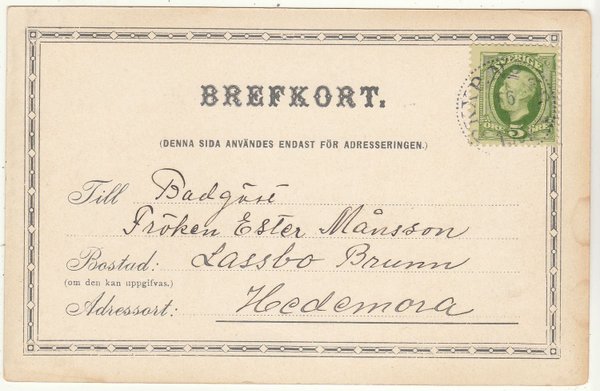 BREFKORT.
SVERIGE
5
ÖRE ÖRE
(DENNA SIDA ANVÄNDES ENDAST FÖR ADRESSERINGEN.)
Till Badgäst
Fröken Ester Månsson
Bostad: Lassbo Brunn
(om den kan uppgifvas.)
Adressort: Hedemora